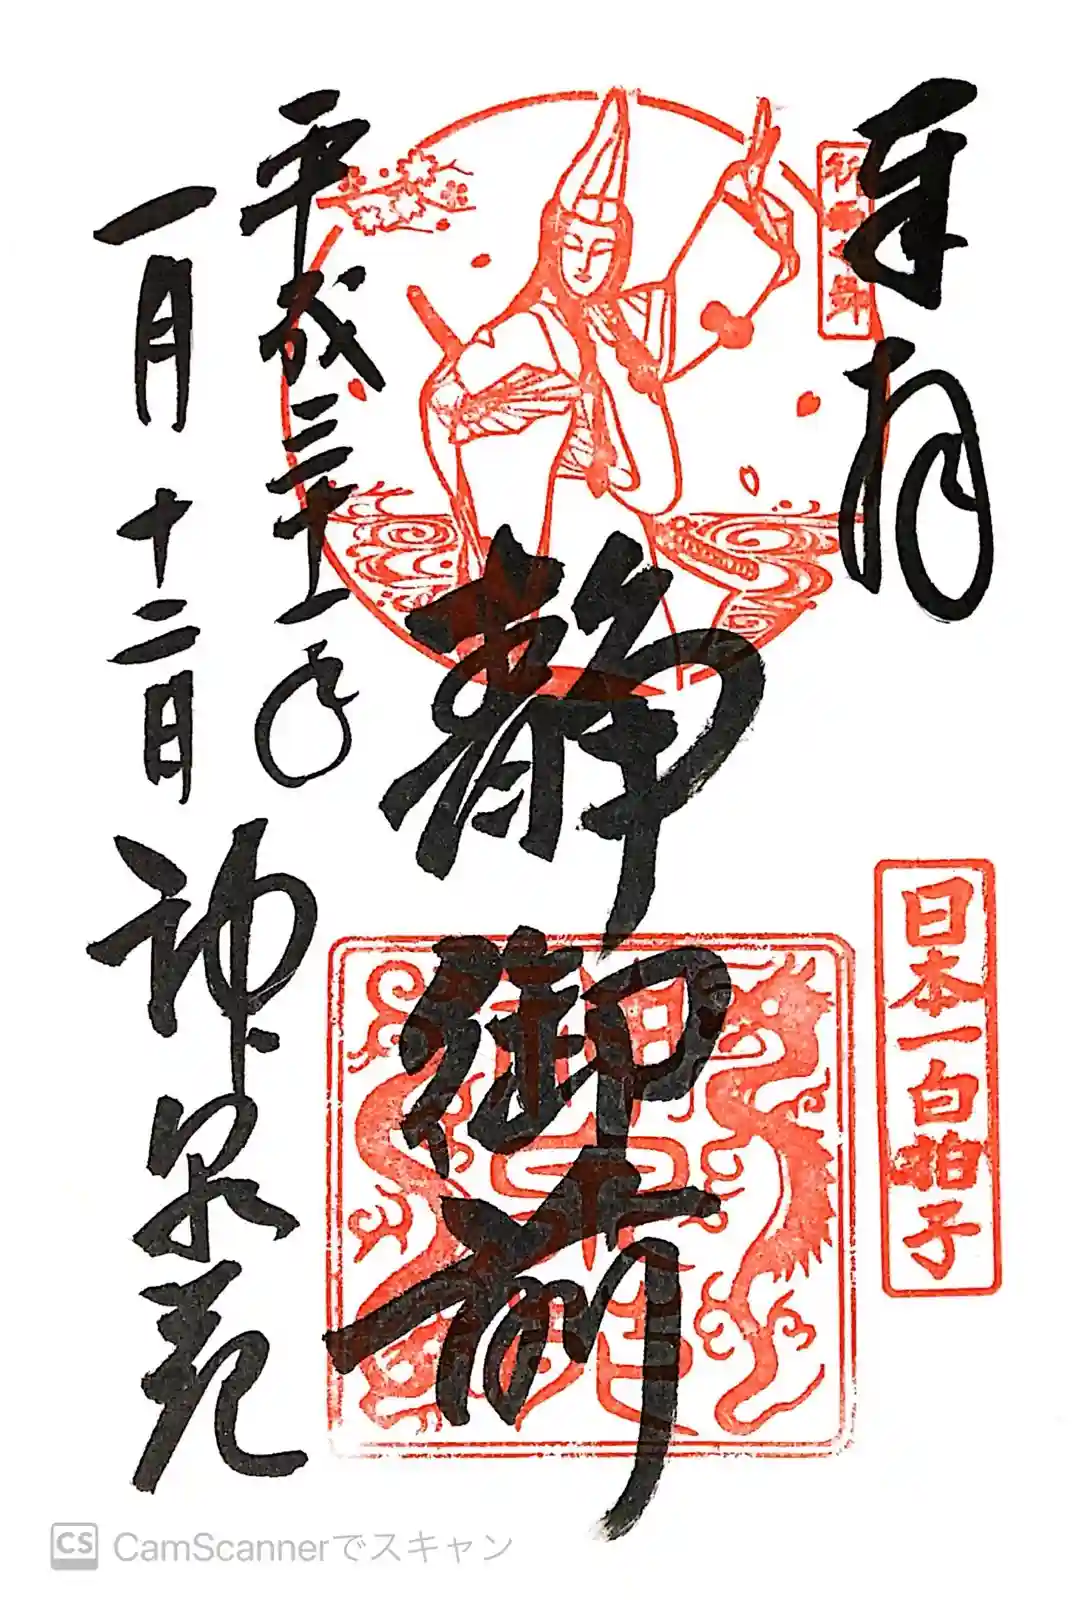 奉拝
日本一白拍子
静御前
平成三十一年
一月十二日
神泉苑
CS CamScannerでスキャン